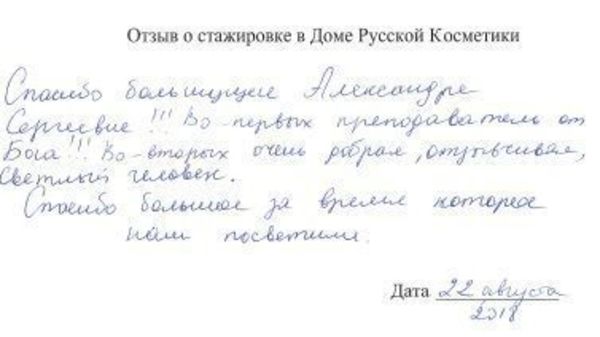 Отзыв о стажировке в Доме Русской Косметики
Спасибо большущее Александре
Сергеевне!!! Во-первых преподаватель от
Бога!!! Во-вторых очень добрая, отзывчивая,
светлый человек.
Спасибо большое за время которое
нам посветили.
Дата 22 августа
2018